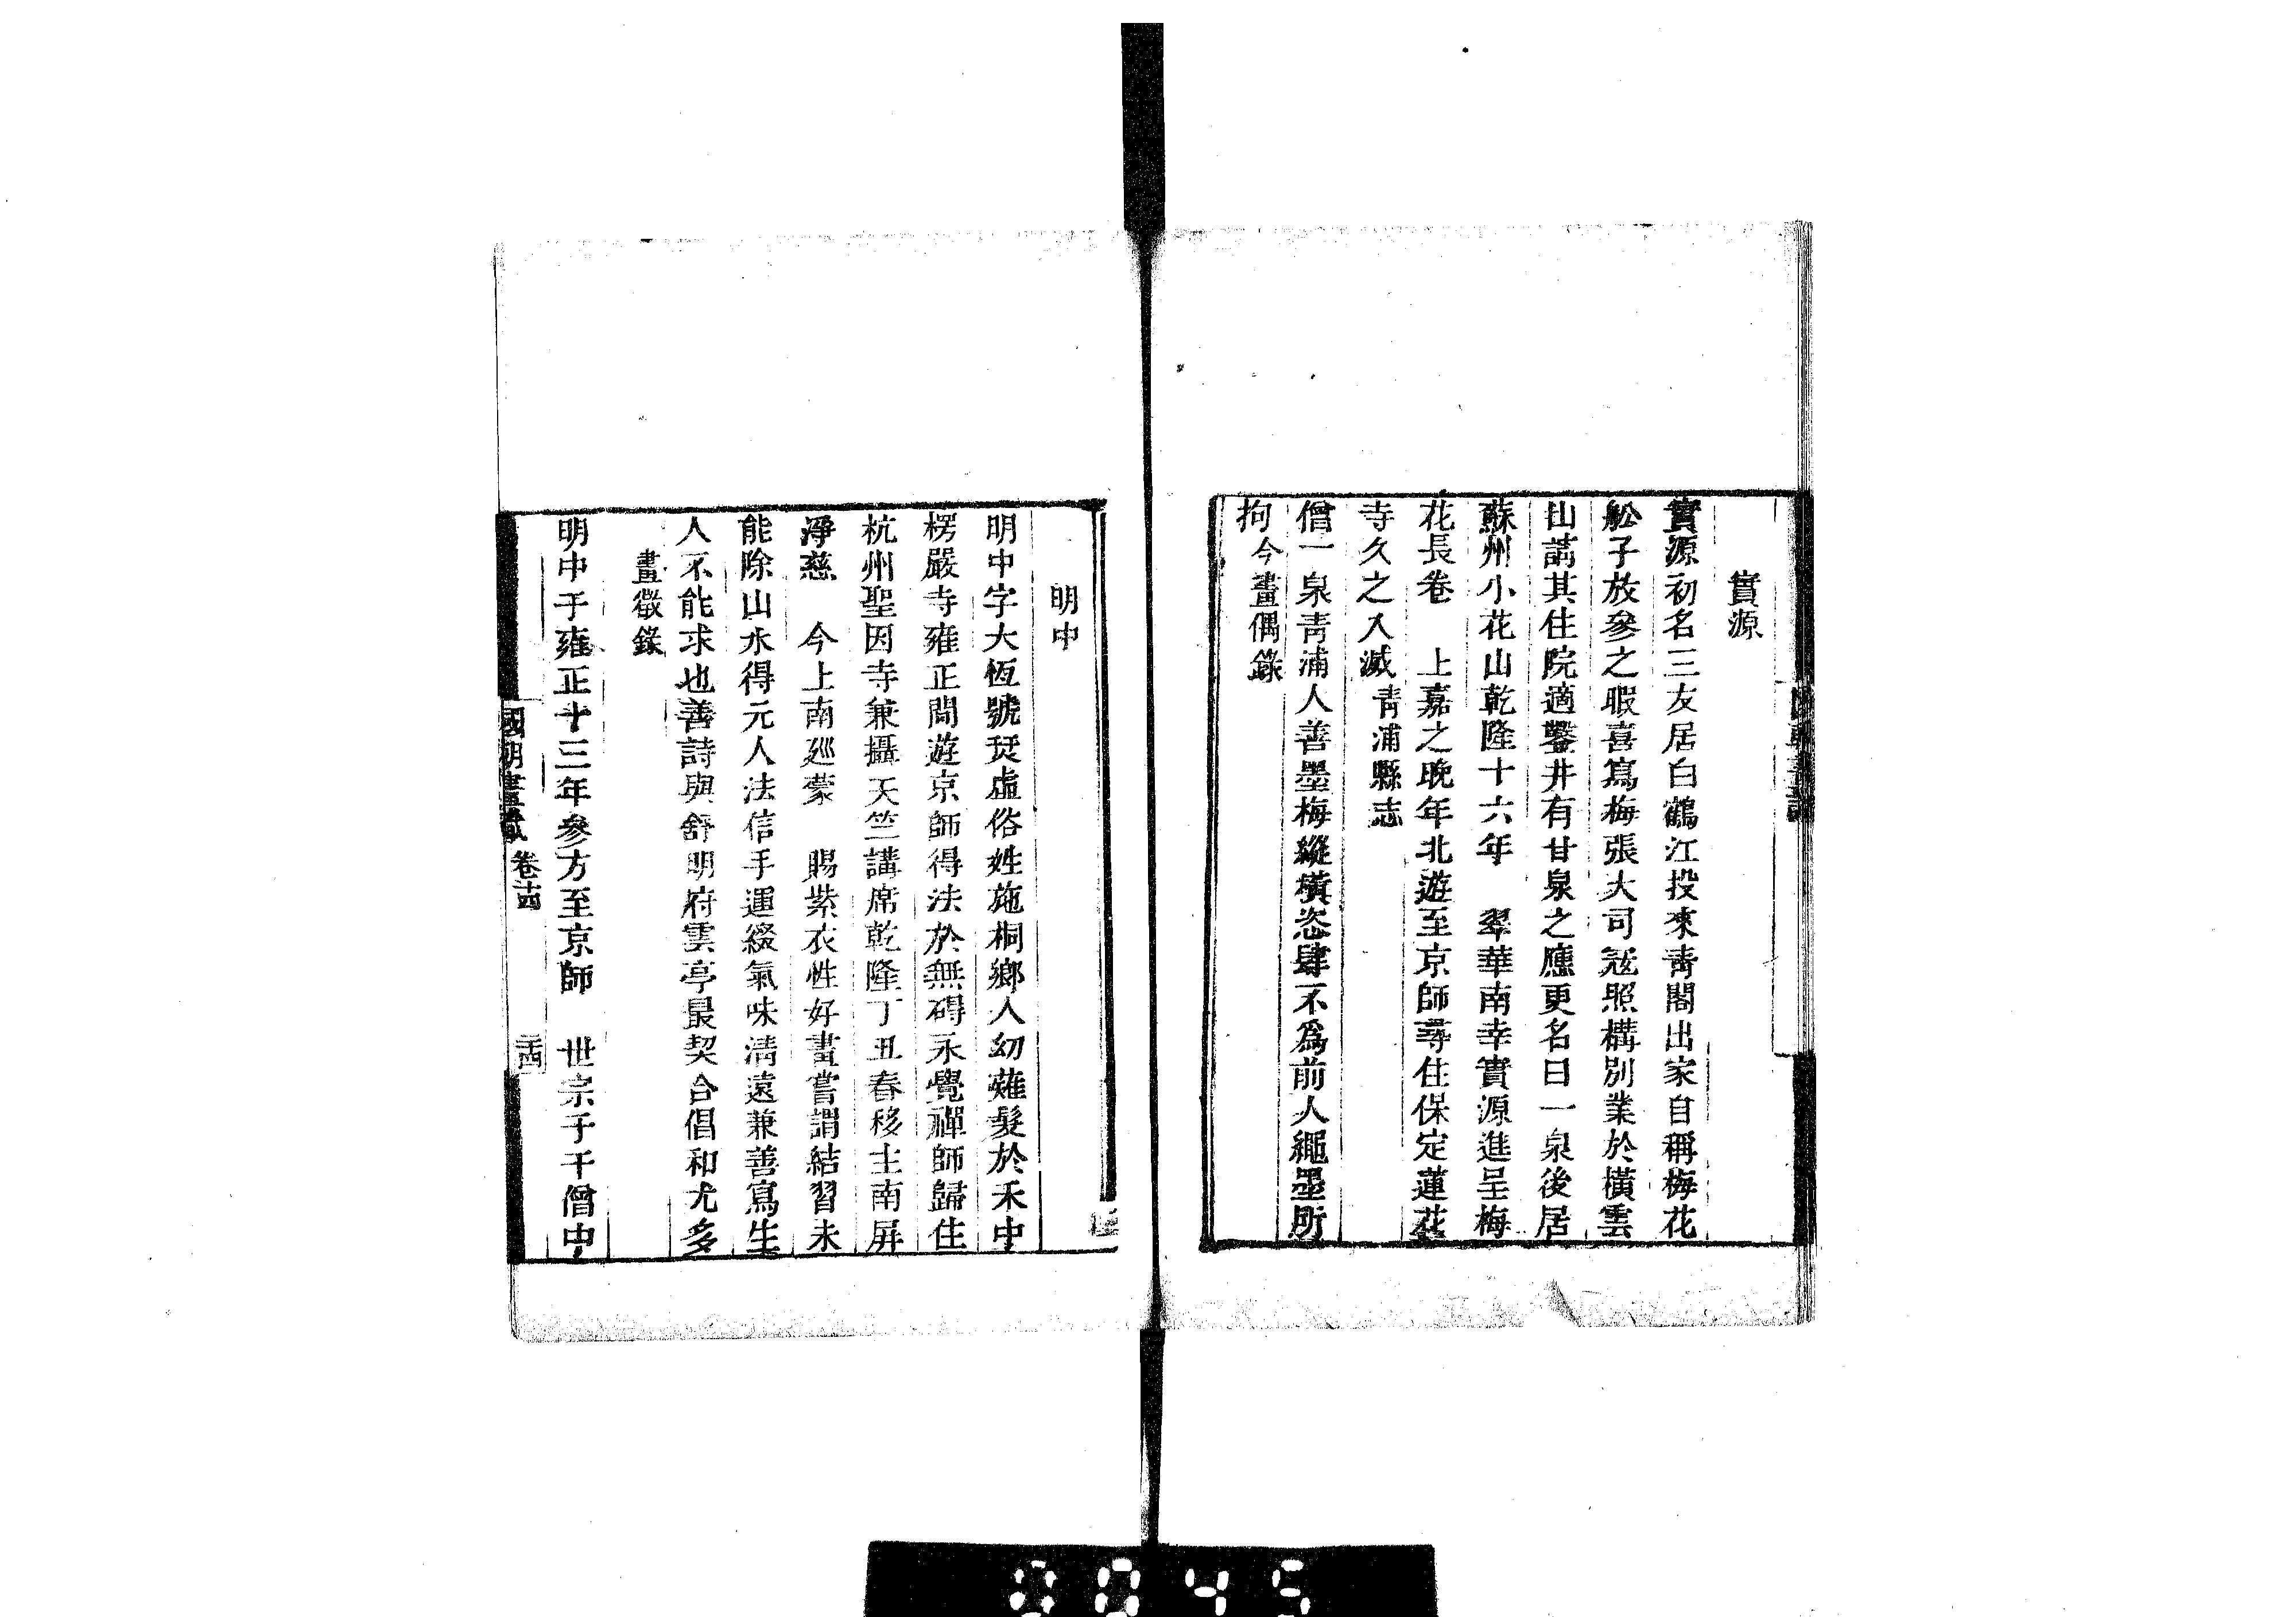 實源
實源初名三友居白鶴江投來靑閣出家自稱梅花
舩子放參之暇喜寫梅張大司冦照構別業於橫雲
山請其住院適鑿井有甘泉之應更名曰一泉後居
蘇州小花山乾隆十六年　翠華南幸實源進呈梅
花長卷　上嘉之晚年北遊至京師尋住保定蓮花
寺久之入滅靑浦縣志
僧一泉靑浦人善墨梅縱橫恣肆不爲前人繩墨所
拘今畫偶錄
明中
明中字大恆號烎虛俗姓施桐鄉人幼薙髮於禾中
楞嚴寺雍正間遊京師得法於無碍永覺禪師歸住
杭州聖因寺兼攝天竺講席乾隆丁丑春移主南屏
淨慈　今上南廵蒙　賜紫衣性好畫嘗謂結習未
能除山水得元人法信手運綴氣味清遠兼善寫生
人不能求也善詩與舒明府雲亭最契合倡和尤多
畫徵錄
明中于雍正十三年參方至京師　世宗于千僧中
國朝畫識　卷十四　三四
0045